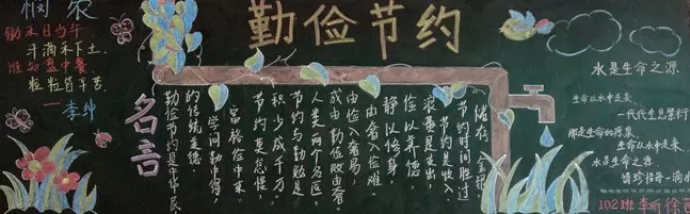 悯农
锄禾日当午
汗滴禾下土
谁知盘中餐
粒粒皆辛苦
李绅
勤俭节约
名言
节约时间胜过
储存金银
节约是收入
浪费是支出
俭以养德
静以修身
由奢入俭难
由俭入奢易
成由勤俭败由奢
人类两个名医
节约与勤勉是
积少成千万
节约莫怠慢
富裕俭中来
学问勤中得
的传统美德
勤俭节约是中华民
水是生命之源
生命从水中走来
一代代生息繁衍
那是生命的源泉
生命从水中走来
水是生命之源
请珍惜每一滴水
102班 李昕 徐